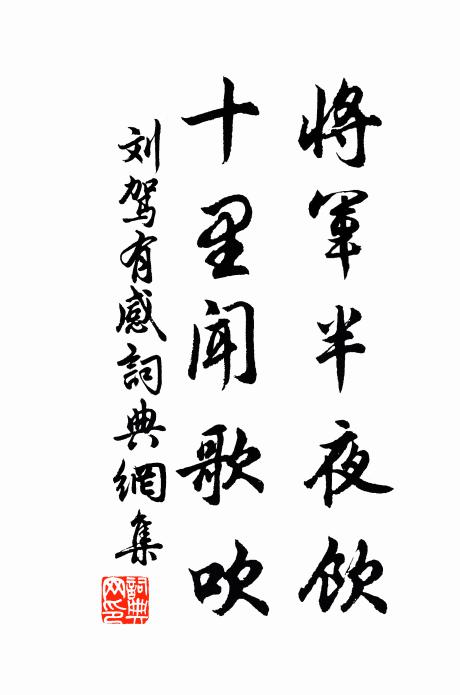 将軍半夜飲
十里闻歌吹
刘驾有感詞典網集
詞典网印